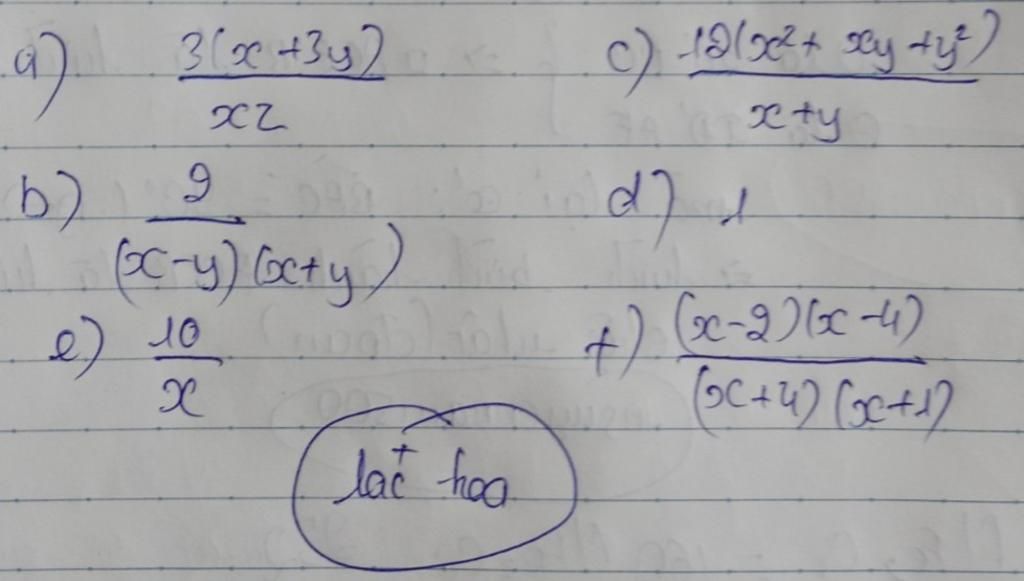 a) 3(x+3y) / xz c) 12(x²+ xy +y²) / x+y
b) 9 / (x-y)(x+y) d) 1
e) 10 / x f) (x-2)(x-4) / (x+4)(x+1)
hoa